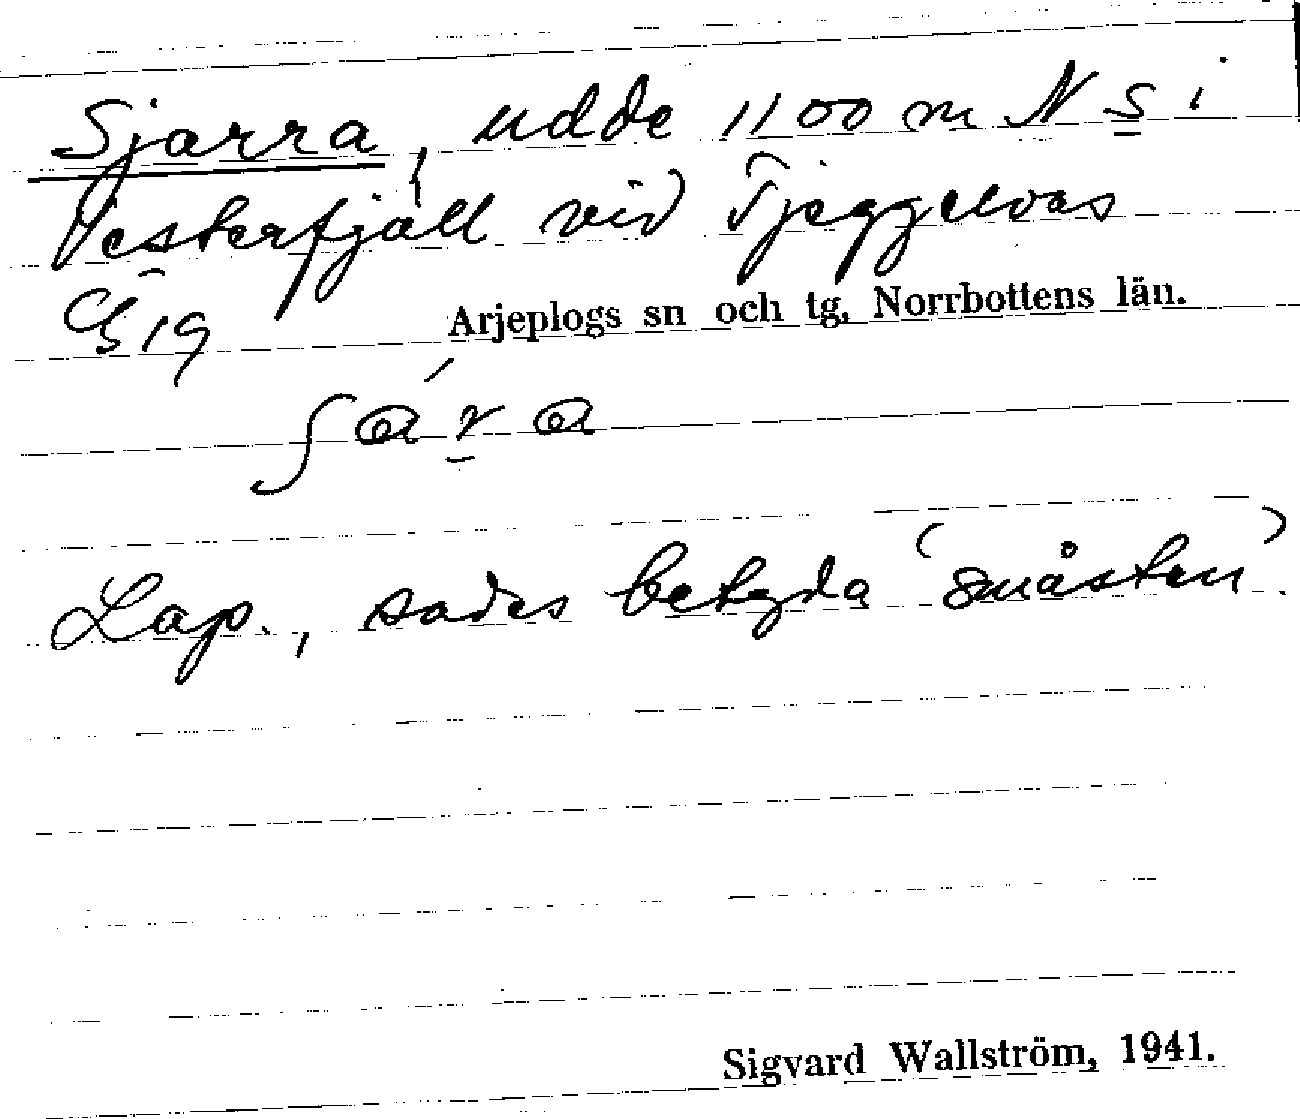 Sjarra, udde 1100 m N S i
Vesterfjäll vid Tjeggelvas
19 Arjeplogs sn och tg, Norrbottens län.
ʃára
Lap., sades betyda 'småsten'.
Sigvard Wallström, 1941.